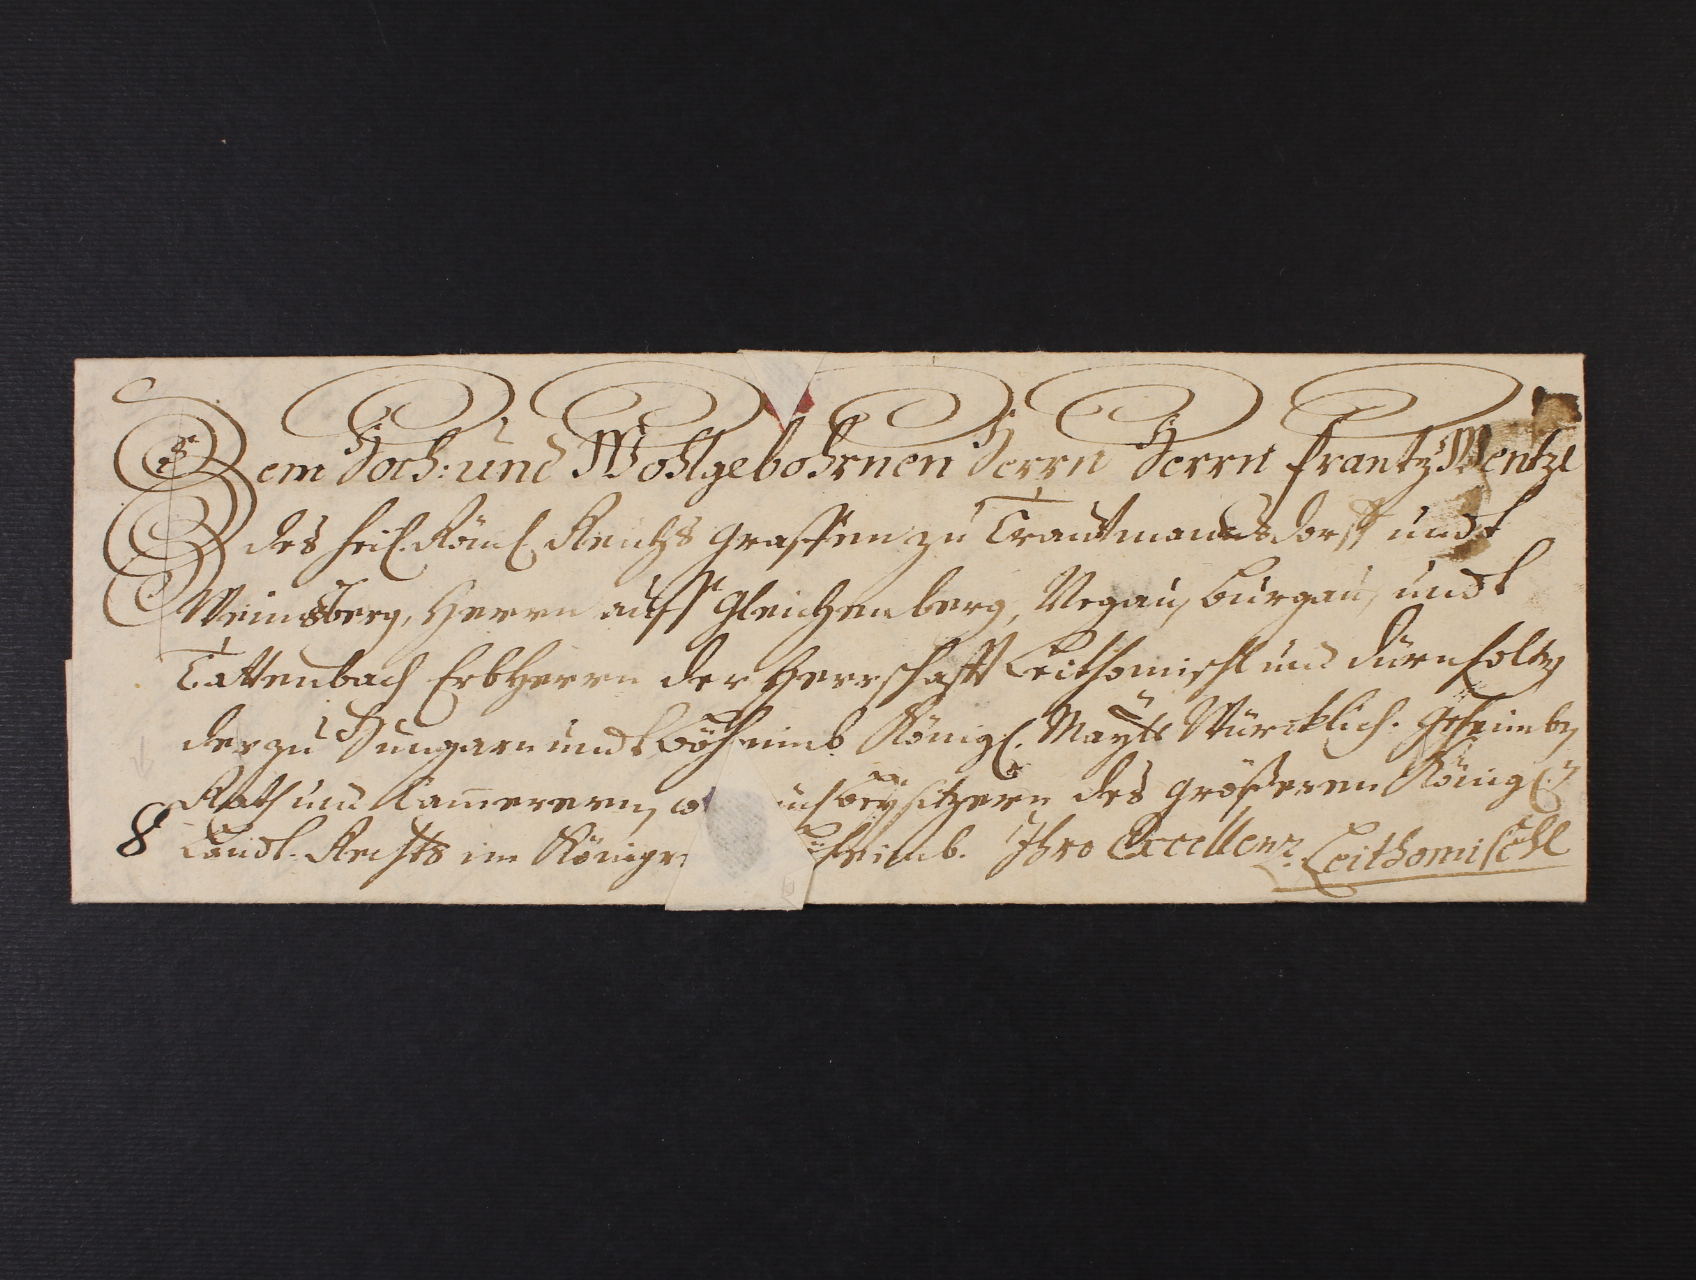 Dem Hoch: und Wohlgebohrnen Herrn Herrn Frantz Wentzl
des heil. Röml. Reichs Graffen zu Trautmansdorff undt
Weinsberg, Herrn auff Gleichenberg, Negau, Burgau, undt
Tattenbach Erbherrn der Herrschafft Leithomischl und Dürnholtz
der zu Hungarn undt Böheimb Königl. Mayts Würcklich. Geheimben
Rath und Kamerern, auch beysitzern des größeren Königl.
8 Landt. Rechts im Königr. Böheimb. Ihro Excellenz. Leithomischl